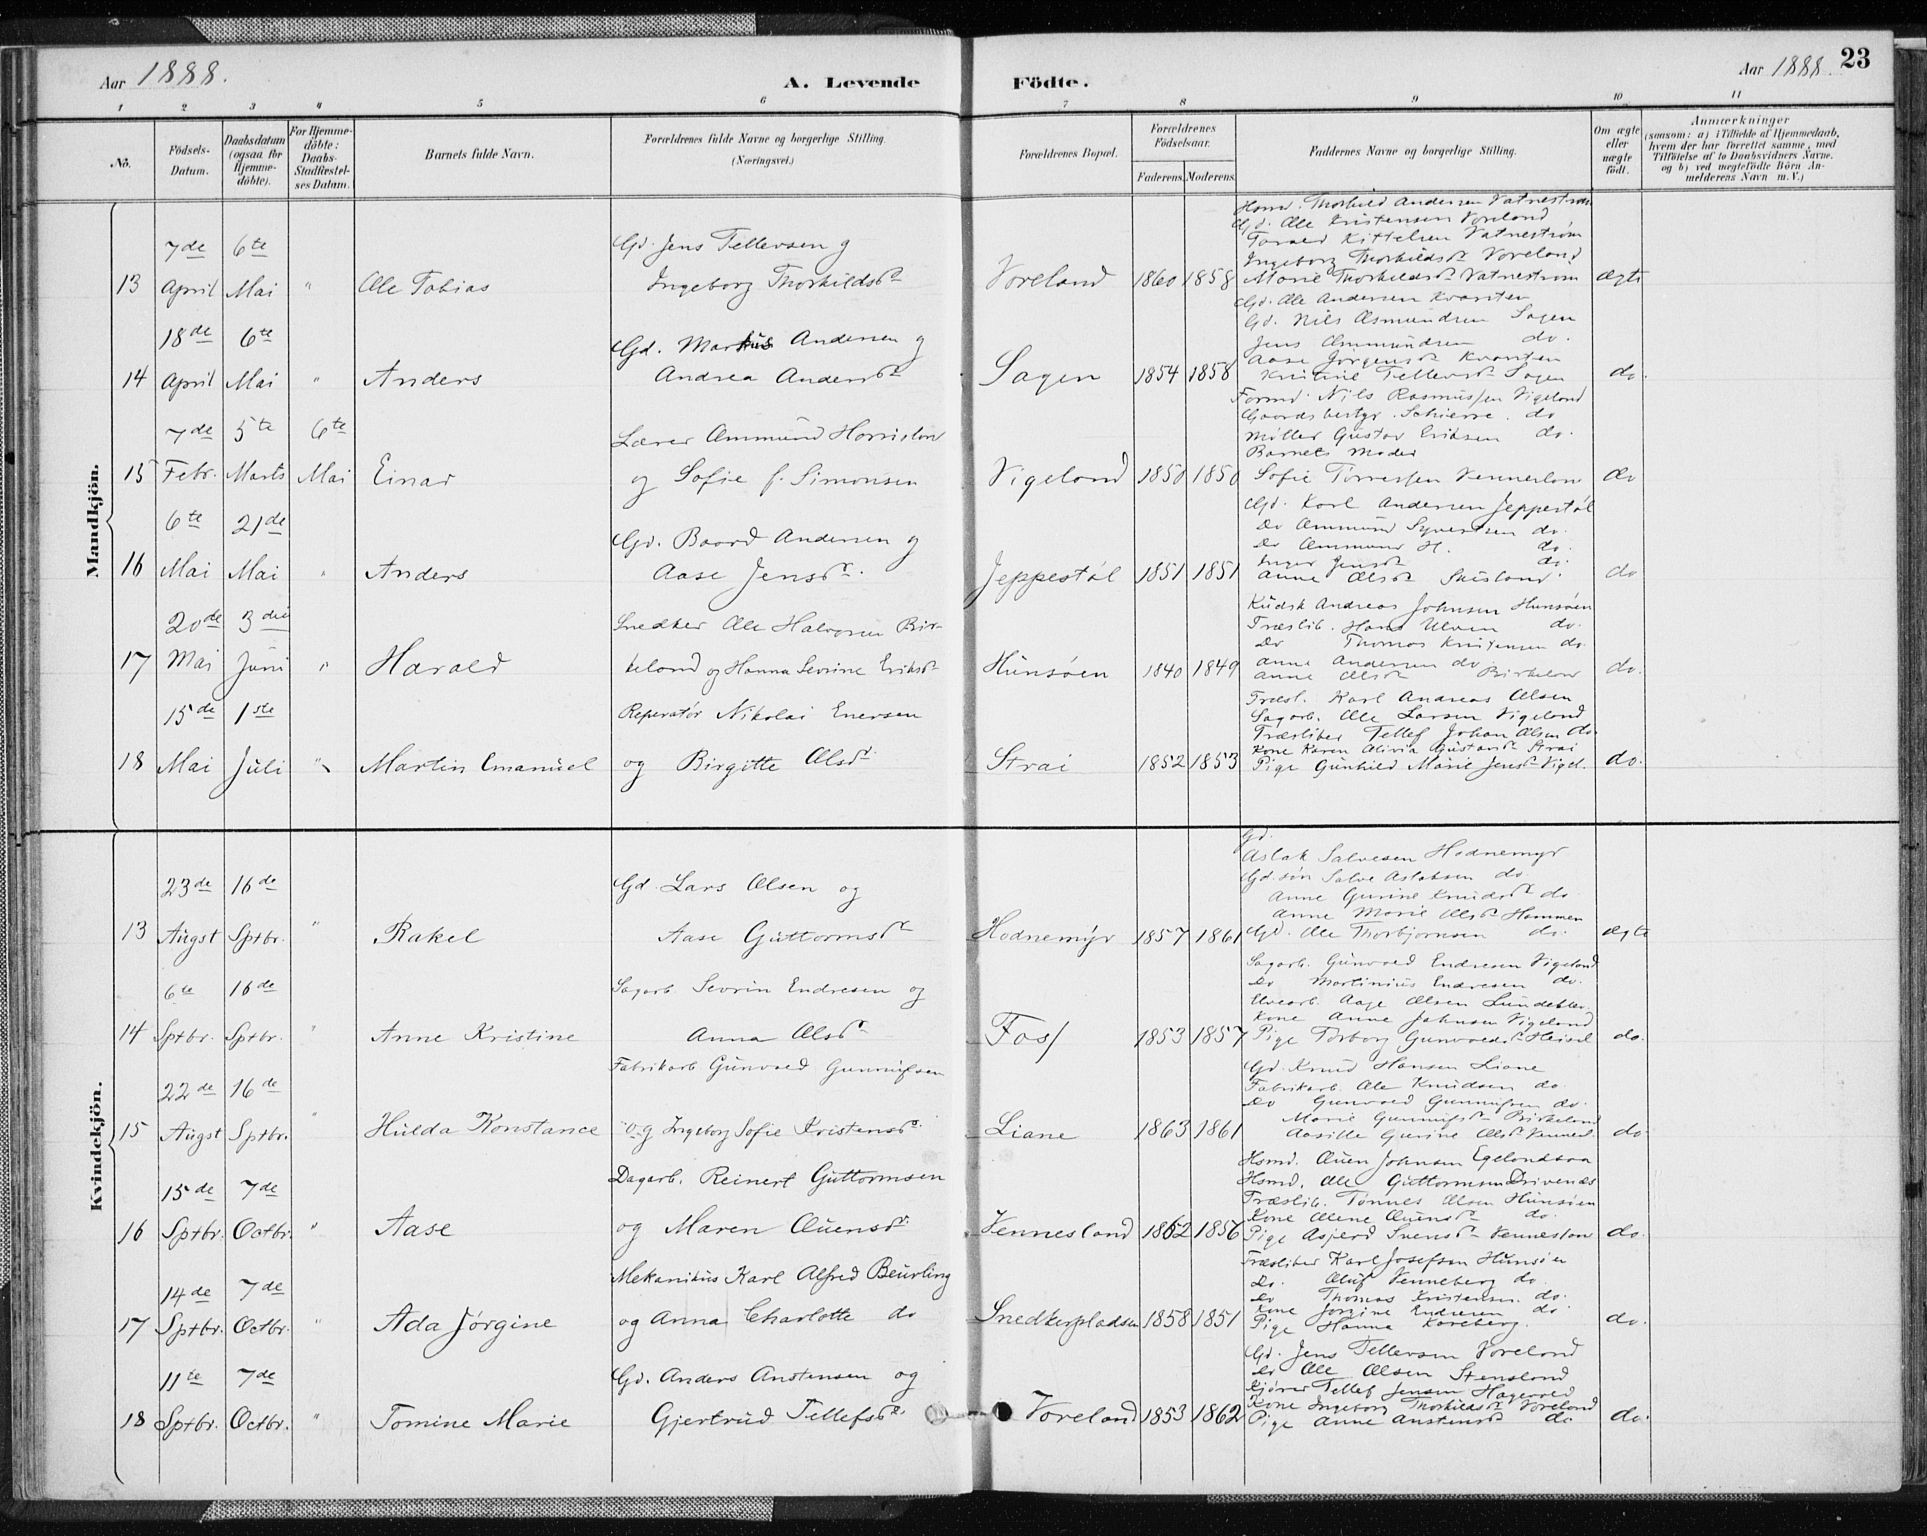 Aar 1888.
A. Levende Födte.
Aar 1888.
23
1 2 3 4 5 6 7 8 9 10 11
No.
Födsels-Datum.
Daabsdatum (ogsaa for Hjemme-döbte).
For Hjemme-döbte: Daabs-Stadfæstel-ses Datum.
Barnets fulde Navn.
Forældrenes fulde Navne og borgerlige Stilling. (Næringsvei.)
Forældrenes Bopæl.
Forældrenes Födselsaar.
Faderens. Moderens.
Faddernes Navne og borgerlige Stilling.
Om ægte eller uægte födt.
Anmærkninger
(saasom: a) i Tilfælde af Hjemmedaab, hvem der har forrettet samme, med Tilföielse af to Daabsvidners Navne, og b) ved uægtefödte Börn An-melderens Navn m. V.)
Mandkjön.
13 7de April 6te Mai " Ole Tobias
Gd. Jens Tellevsen og
Ingeborg Thorkildsdr
Voreland 1860 1858
Hsmd. Thorkild Andersen Vatnestrøm
Gd. Ole Kristensen Voreland
Kittelsen Vatnestrøm
Ingeborg Thorkildsdr Voreland
Marie Thorkildsdr Vatnestrøm
ægte
14 18de April 6te Mai " Anders
Gd. Markus Andersen og
Andrea Andersdr
Sagen 1854 1858
Gd. Ole Andersen Kvarsten
Gd. Nils Asmundsen Sagen
Jens Ommundsen do.
Aase Jørgensdr Kvarsten
Kristine Tellevsdr Sagen
do.
15 7de Febr. 5te Marts 6te Mai Einar
Lærer Ommund
og Sofie f. Simonsen
Vigeland 1850 1850
Formd. Nils Rasmussen Vigeland
Gaardsbestyr. Schierve do
Møller Gustav Eriksen do.
Barnets Moder
Sofie Tørressen Venneslan
do
16 6te Mai 21de Mai " Anders
Gd. Baard Andersen og
Aase Jensdr.
Jeppestøl 1851 1851
Gd. Karl Andersen Jeppestøl
Do Ommund Syvertsen do.
Do Ommund H. do.
Inger Jensdr do.
Anne Olsdr
do
17 20de Mai 3die Juni " Harald
Snedker Ole Halvorsen Bir-
keland og Hanna Sevrine Eriksdr
Hunsøen 1840 1849
Kudsk Andreas Johnsen Hunsøen
Træslib. Hans Ulven do.
Do Thomas Kristensen do.
Anne Andersen do
Anne Olsdr Birkelan
do.
18 15de Mai 1ste Juli " Martin Emanuel
Reperatør Nikolai Enersen
og Birgitte Olsdr
Strai 1852 1853
Træsl. Karl Andreas Olsen
Sagarb. Ole Larsen Vigeland
Træsliber Tellef Johan Olsen do
Kone Karen Olivia Gustavsdr Strai
Pige Gunhild Marie Jensdr Vigel.
do.
Kvindekjön.
13 23de Augst 16de Sptbr. " Rakel
Gd. Lars Olsen og
Aase Guttormsdr
Hodnemyr 1857 1861
Gd.
Aslak Salvesen Hodnemyr
Gd. søn Salve Aslaksen do
Anne Gurine Knudsdr do
Anne Marie Olsdr Hammen
Gd. Ole Thorbjørnsen do.
ægte
14 6te Sptbr. 16de Sptbr. " Anne Kristine
Sagarb. Sevrin Endresen og
Anna Olsdr
Foss 1853 1857
Sagarb. Gunvald Endresen Vigeland
Do Martinius Endresen do.
Aage Olsen
Kone Anne Johnsen Vigeland
Pige Torborg Gunvaldsdr Heisel
do.
15 22de Augst 16de Sptbr. " Hulda Konstance
Fabrikarb. Gunvald Gunnufsen
og Ingeborg Sofie Kristensdr
Liane 1863 1861
Gd. Knud Hansen Liane
Fabrikarb. Ole Knudsen do.
Do Gunvald Gunnufsen do.
Marie Gunnufsdr Birkeland
Gurine Olsdr Vennesl.
do
16 15de Sptbr. 7de Octbr. " Aase
Dagarb. Reinert Guttormsen
og Maren Auensdr
Vennesland 1862 1856
Hsmd. Auen Johnsen Egelandsaa
Hsmd. Ole Guttormsen Drivenæs
Træslib. Tønnes Olsen Hunsøen
Kone Olene Auensdr do.
Pige Asjerd Svensdr Venneslan
do.
17 14de Sptbr. 7de Octbr. " Ada Jørgine
Mekanikus Karl Alfred Beurling
og Anna Charlotte do
Snedkerpladsen 1858 1851
Træsliber Karl Josefsen Hunsøen
Do. Oluf Venneberg do.
Do Thomas Kristensen do.
Kone Jørgine Endresen do
Pige Hanna Kareberg.
do.
18 11te Sptbr. 7de Octbr. " Tomine Marie
Gd. Anders Anstensen og
Gjertrud Tellefsdr.
Voreland 1853 1862
Gd. Jens Tellevsen Voreland
Do Ole Olsen Stensland
Tellef Jensen Hagevold
Kone Ingeborg Thorkildsdr Voreland
Pige Anne Anstensdr do
do.